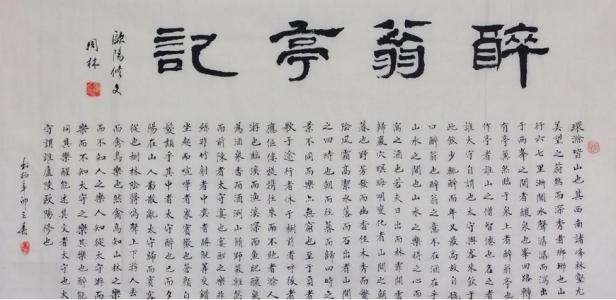 醉翁亭記
歐陽修文
周林
環滁皆山也其西南諸峰林壑尤
美望之蔚然而深秀者瑯琊也山
行六七里漸聞水聲潺潺而瀉出
於兩峰之間者釀泉也峰回路轉
有亭翼然臨於泉上者醉翁亭也
作亭者誰山之僧智僊也名之者
誰太守自謂也太守與客來飲於
此飲少輒醉而年又最高故自號
曰醉翁也醉翁之意不在酒在乎
山水之間也山水之樂得之心而
寓之酒也若夫日出而林霏開雲
歸巖穴暝晦明變化者山間之朝
暮也野芳發而幽香佳木秀而繁
陰風霜高潔水落而石出者山間
之四時也朝而往暮而歸四時之
景不同而樂亦無窮也至于負者
歌于途行者休于樹前者呼後者
應傴僂提攜往來而不絕者滁人
游也臨溪而漁溪深而魚肥釀泉
為酒泉香而酒洌山餚野蔌雜然
而前陳者太守宴也宴酣之樂非
絲非竹射者中奕者勝觥籌交錯
坐起而喧嘩者衆賓歡也蒼顏白
髮頹乎其中者太守醉也已而夕
陽在山人影散亂太守歸而賓客
從也樹林陰翳鳴聲上下游人去
而禽鳥樂也然禽鳥知山林之樂
而不知人之樂人知從太守游而
樂而不知太守之樂其樂也醉能
同其樂醒能述其文者太守也太
守謂誰廬陵歐陽修也
辛卯